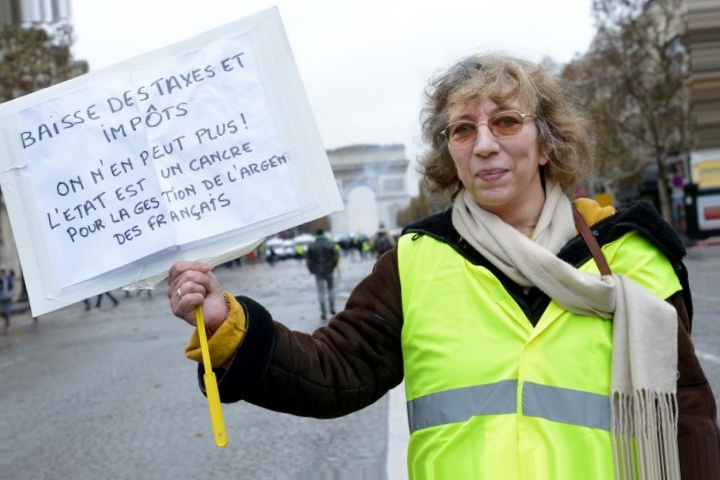 BAISSE DES TAXES ET
IMPÔTS
ON N'EN PEUT PLUS !
L'ETAT EST UN CANCRE
POUR LA GESTION DE L'ARGENT
DES FRANÇAIS